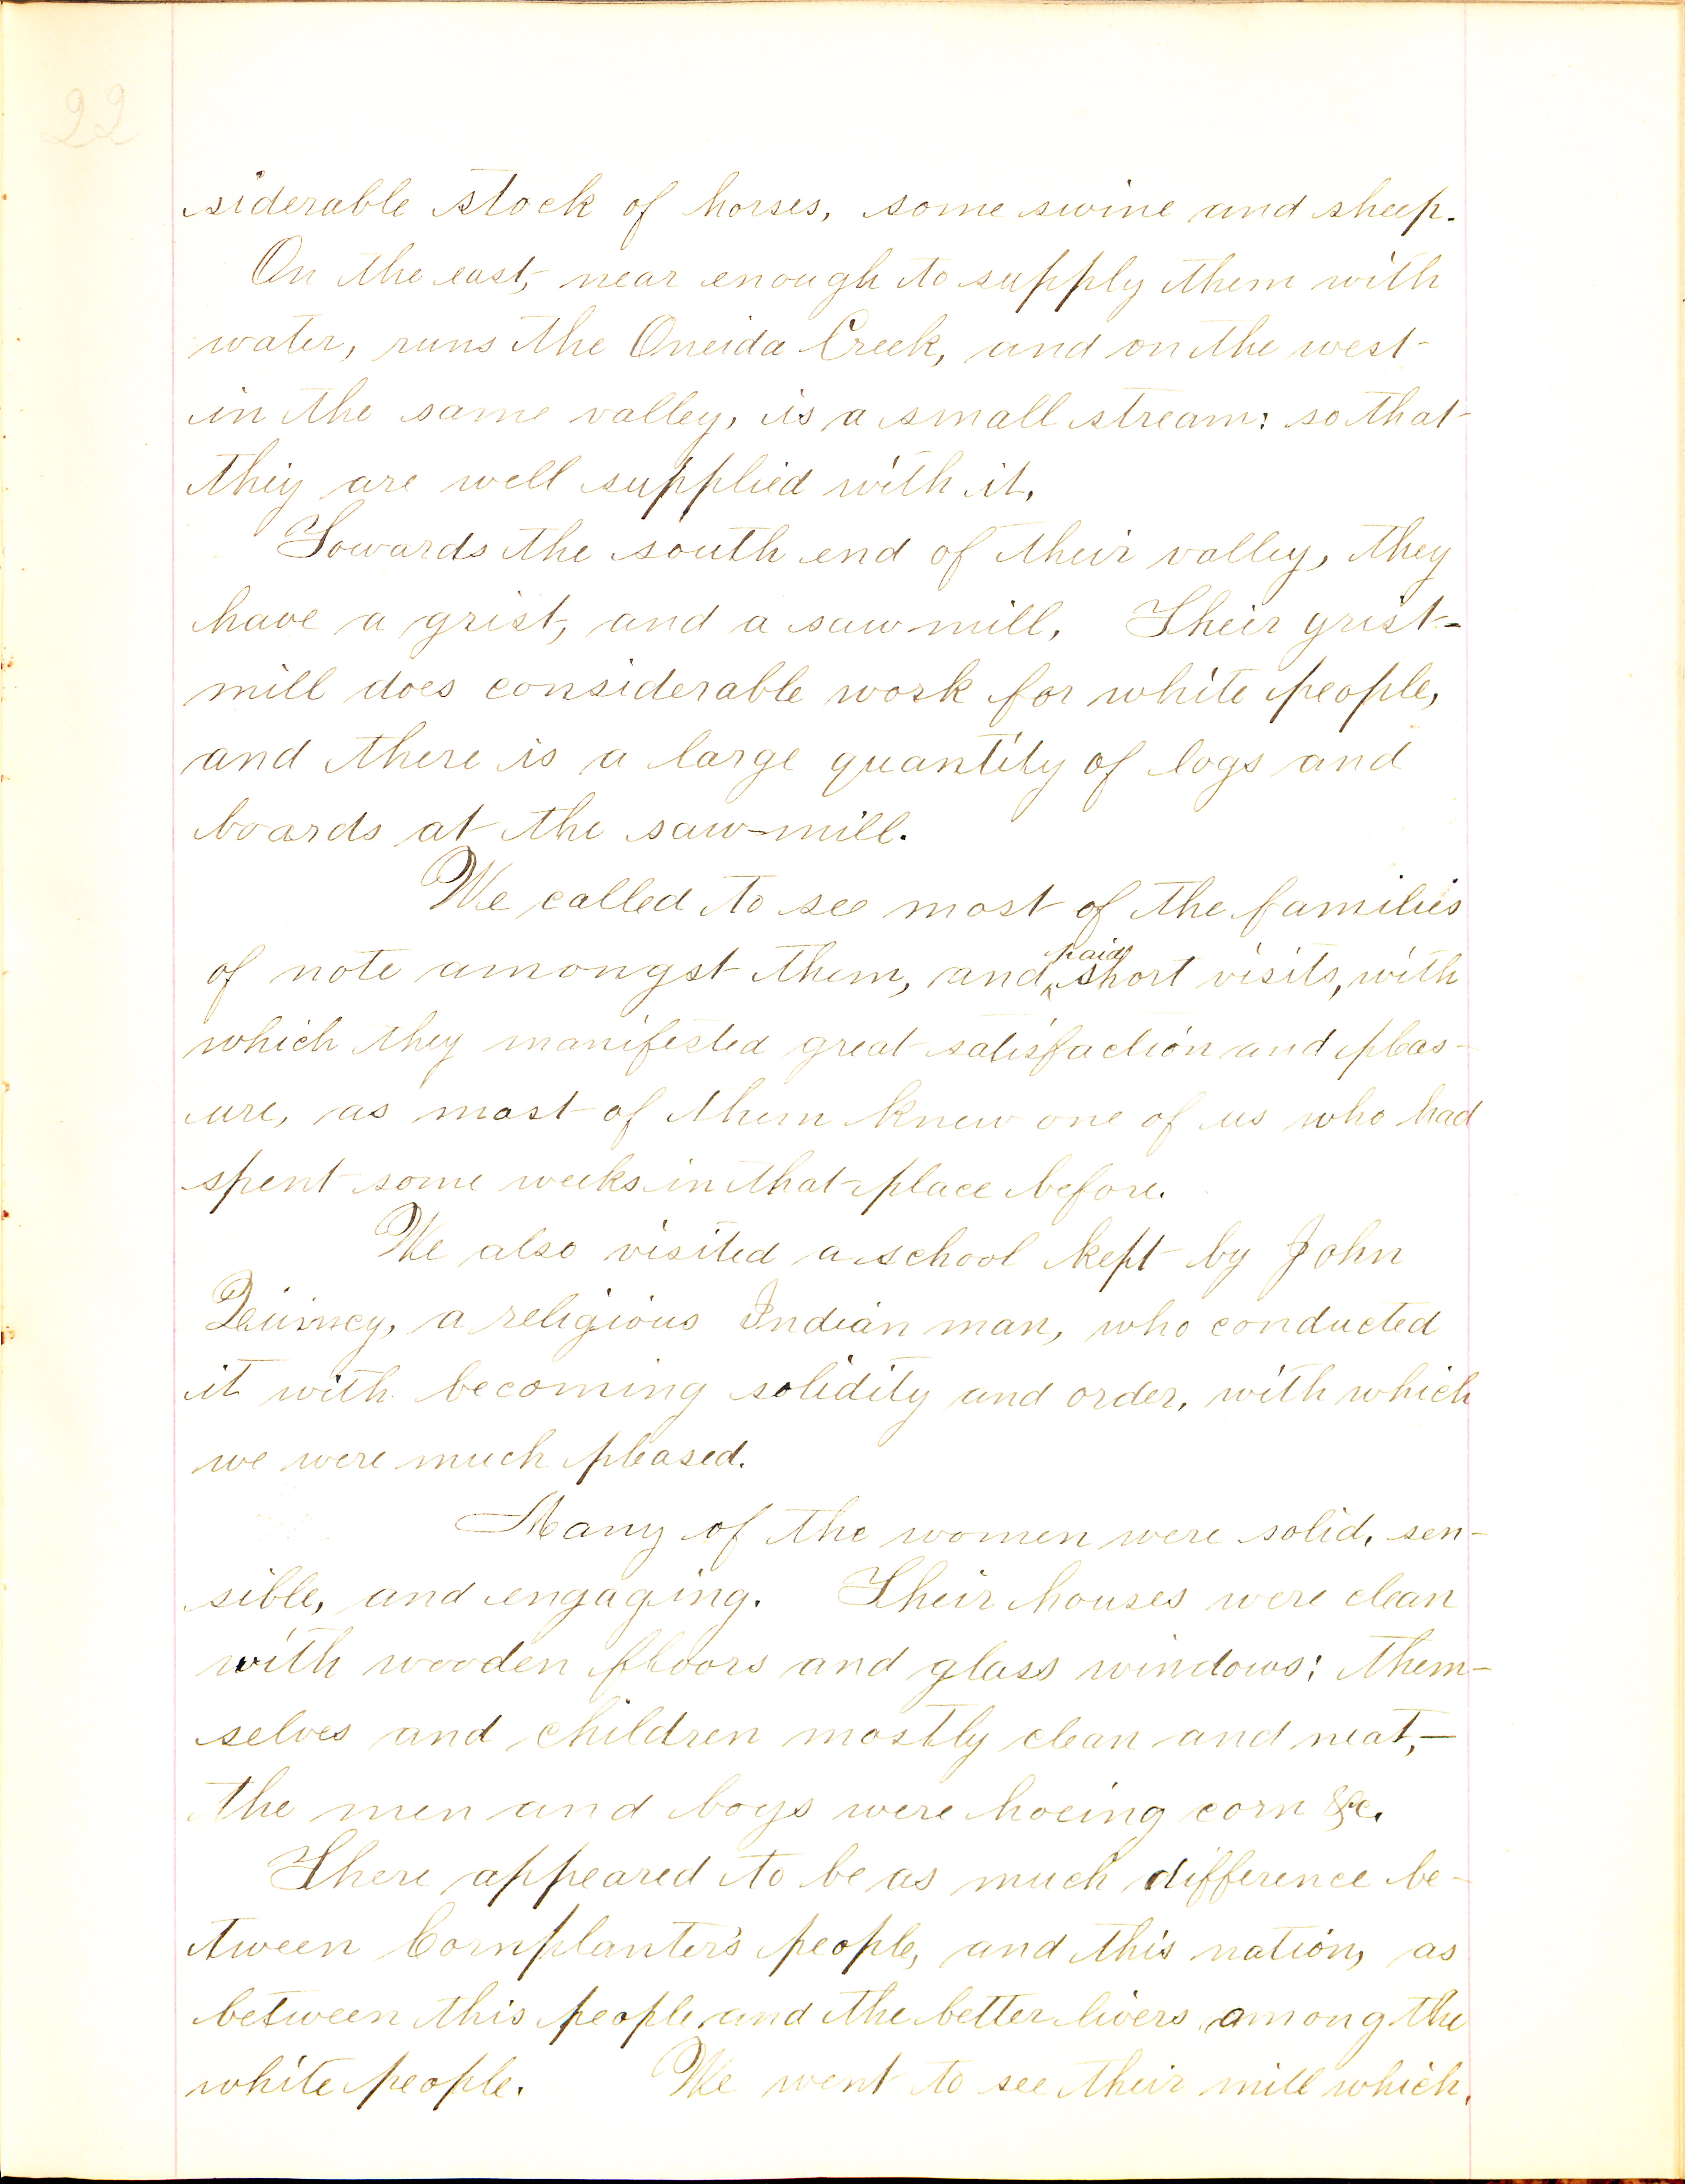 22
siderable stock of horses, some swine and sheep.
On the east, near enough to supply them with
water, runs the Oneida Creek, and on the west
in the same valley, is a small stream: so that
they are well supplied with it.
Towards the south end of their valley, they
have a grist, and a saw mill. Their grist-
mill does considerable work for white people,
and there is a large quantity of logs and
boards at the saw-mill.
We called to see most of the families
of note amongst them, and paid short visits, with
which they manifested great satisfaction and pleas-
ure, as most of them knew one of us who had
spent some weeks in that place before.
We also visited a school kept by John
Quinney, a religious Indian man, who conducted
it with becoming solidity and order, with which
we were much pleased.
Many of the women were solid, sen-
sible, and engaging. Their houses were clean
with wooden floors and glass windows: them-
selves and children mostly clean and neat,—
the men and boys were hoeing corn &c.
There appeared to be as much difference be-
tween Cornplanter's people, and this nation, as
between this people, and the better livers among the
white people. We went to see their mill which,